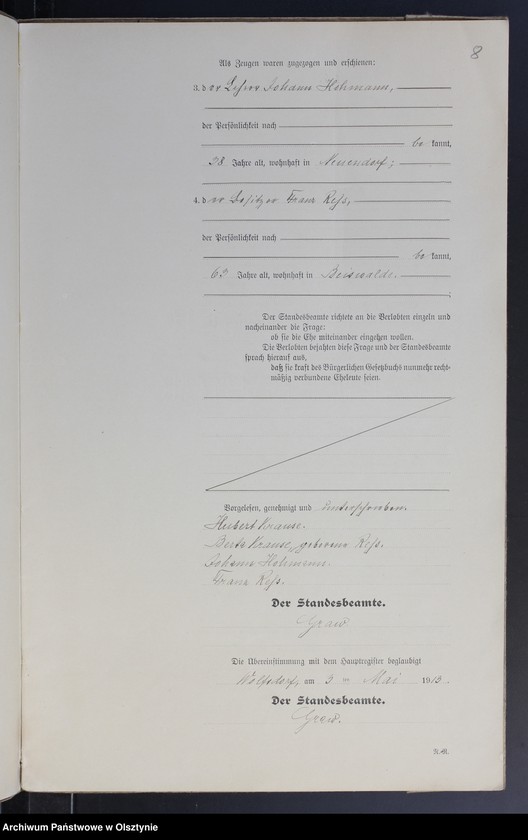 8
Als Zeugen waren zugezogen und erschienen:
3. der Lehrer Johann Hohmann,
der Persönlichkeit nach
be kannt,
38 Jahre alt, wohnhaft in Neuendorf;
4. der Besitzer Franz Reſs,
der Persönlichkeit nach
be kannt,
Jahre alt, wohnhaft in Beiswalde.
;
Der Standesbeamte richtete an die Verlobten einzeln und
nacheinander die Frage:
ob sie die Ehe miteinander eingehen wollen.
Die Verlobten bejahten diese Frage und der Standesbeamte
sprach hierauf aus,
daß sie kraft des Bürgerlichen Gesetzbuchs nunmehr recht-
mäßig verbundene Eheleute seien.
Vorgelesen, genehmigt und unterschrieben.
Hubert Krause.
Berta Krause, geborene Reſs.
Johann Hohmann.
Franz Reſs.
Der Standesbeamte.
Graw
Die Übereinstimmung mit dem Hauptregister beglaubigt
Wolfsdorf, am 3 ten Mai 1913.
Der Standesbeamte.
Graw.
Archiwum Państwowe w Olsztynie